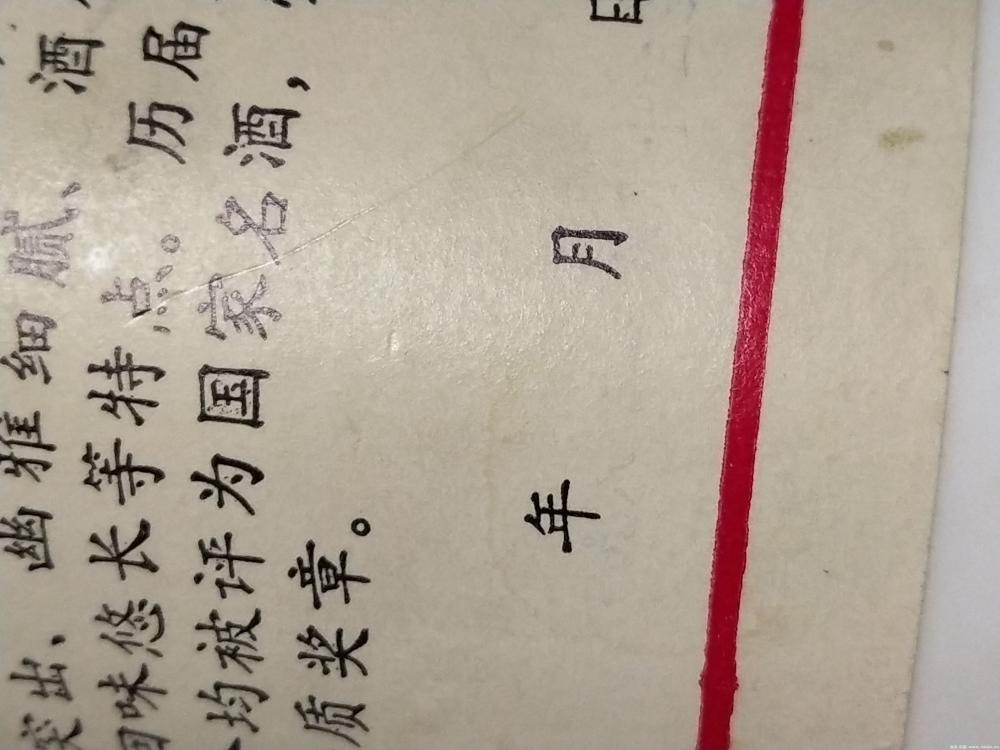 突出、幽雅细腻、酒
回味悠长等特点。历届
均被评为国家名酒,
质奖章。
年 月 日